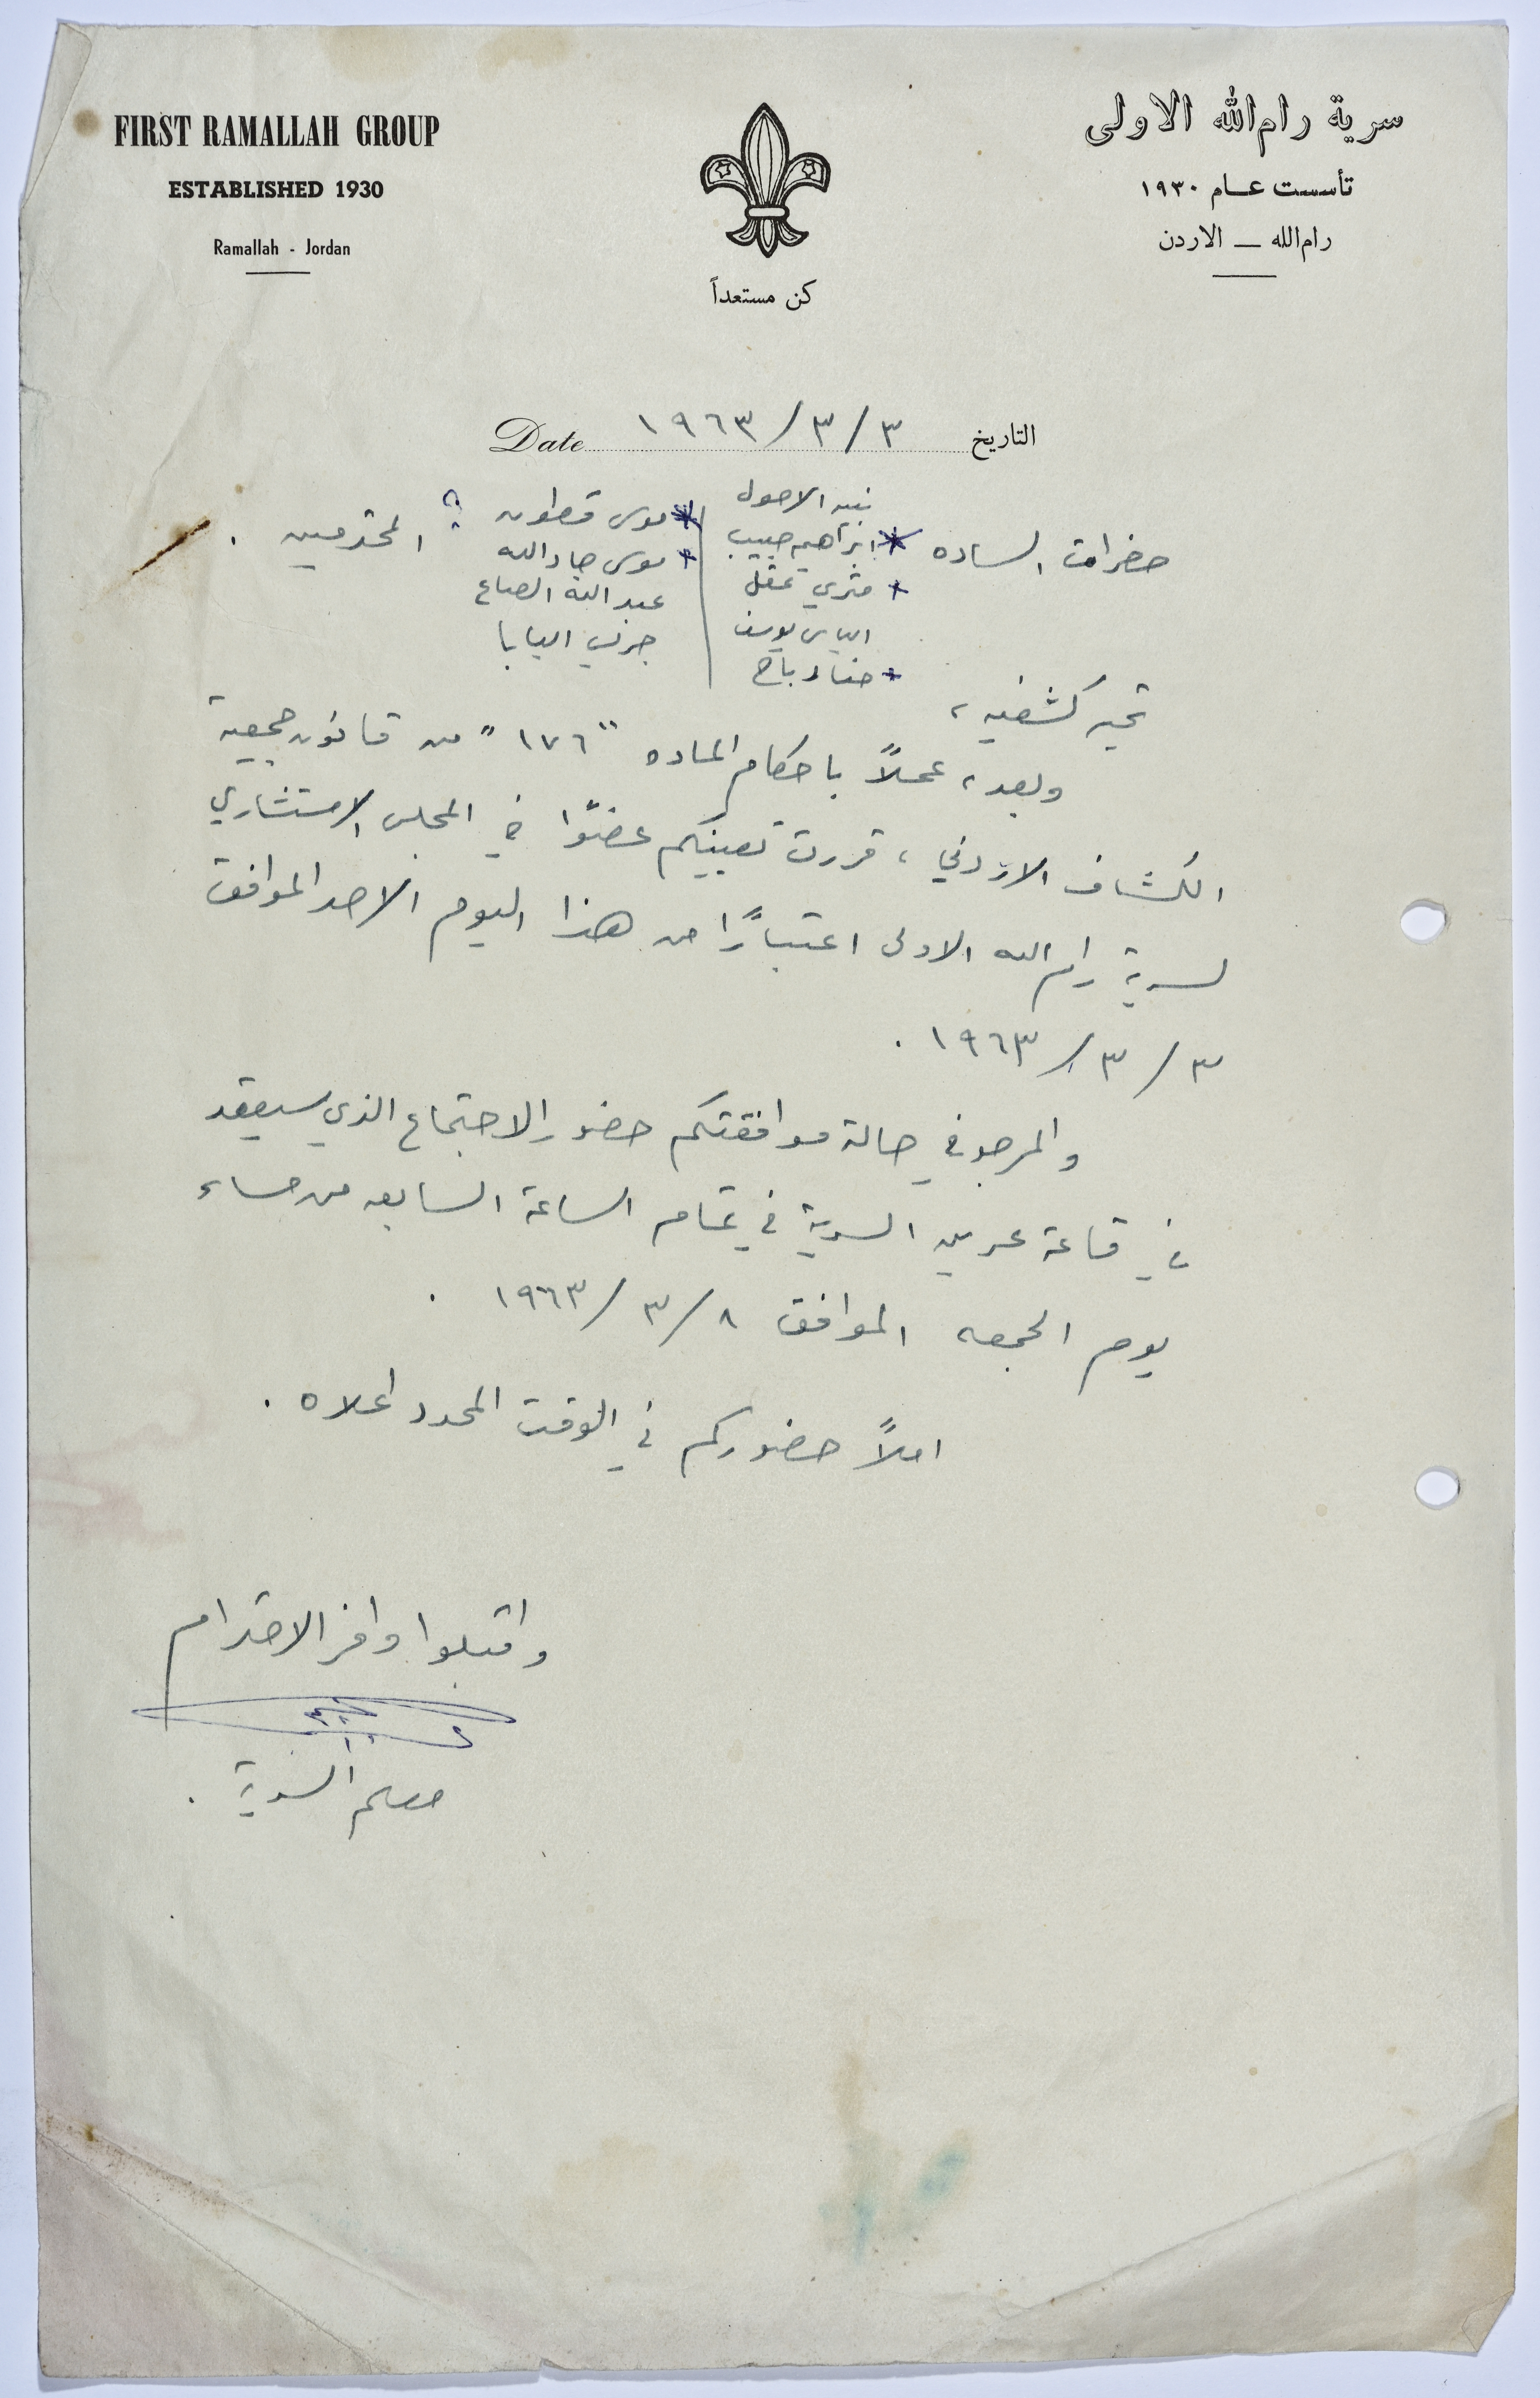 FIRST RAMALLAH GROUP
ESTABLISHED 1930
Ramallah - Jordan
كن مستعداً
سرية رام الله الاولى
تأسست عام ١٩٣٠
رام الله — الاردن
التاريخ ٣/٣/١٩٦٣ Date
حضرات الساده المحترمين .
نبيه الاحول
ابراهيم حبيب
متري عقل
الياس يوسف
حنا رباح
موسى قطون ؟
موسى جادالله
عبدالله الصاع
جرس البابا
تحيه كشفيه ،
وبعد ، عملاً باحكام الماده "١٧٦" من قانون جمعية
الكشاف الاردني ، قررت تعيينكم عضوًا في المجلس الاستشاري
لسرية رام الله الاولى اعتبارًا من هذا اليوم الاحد الموافق
٣/٣/١٩٦٣ .
والمرجو في حالة موافقتكم حضور الاجتماع الذي سيعقد
في قاعة عرين السرية في تمام الساعة السابعه من مساء
يوم الجمعه الموافق ٨/٣/١٩٦٣ .
املاً حضوركم في الوقت المحدد اعلاه .
واقبلوا وافر الاحترام
معلم السرية .